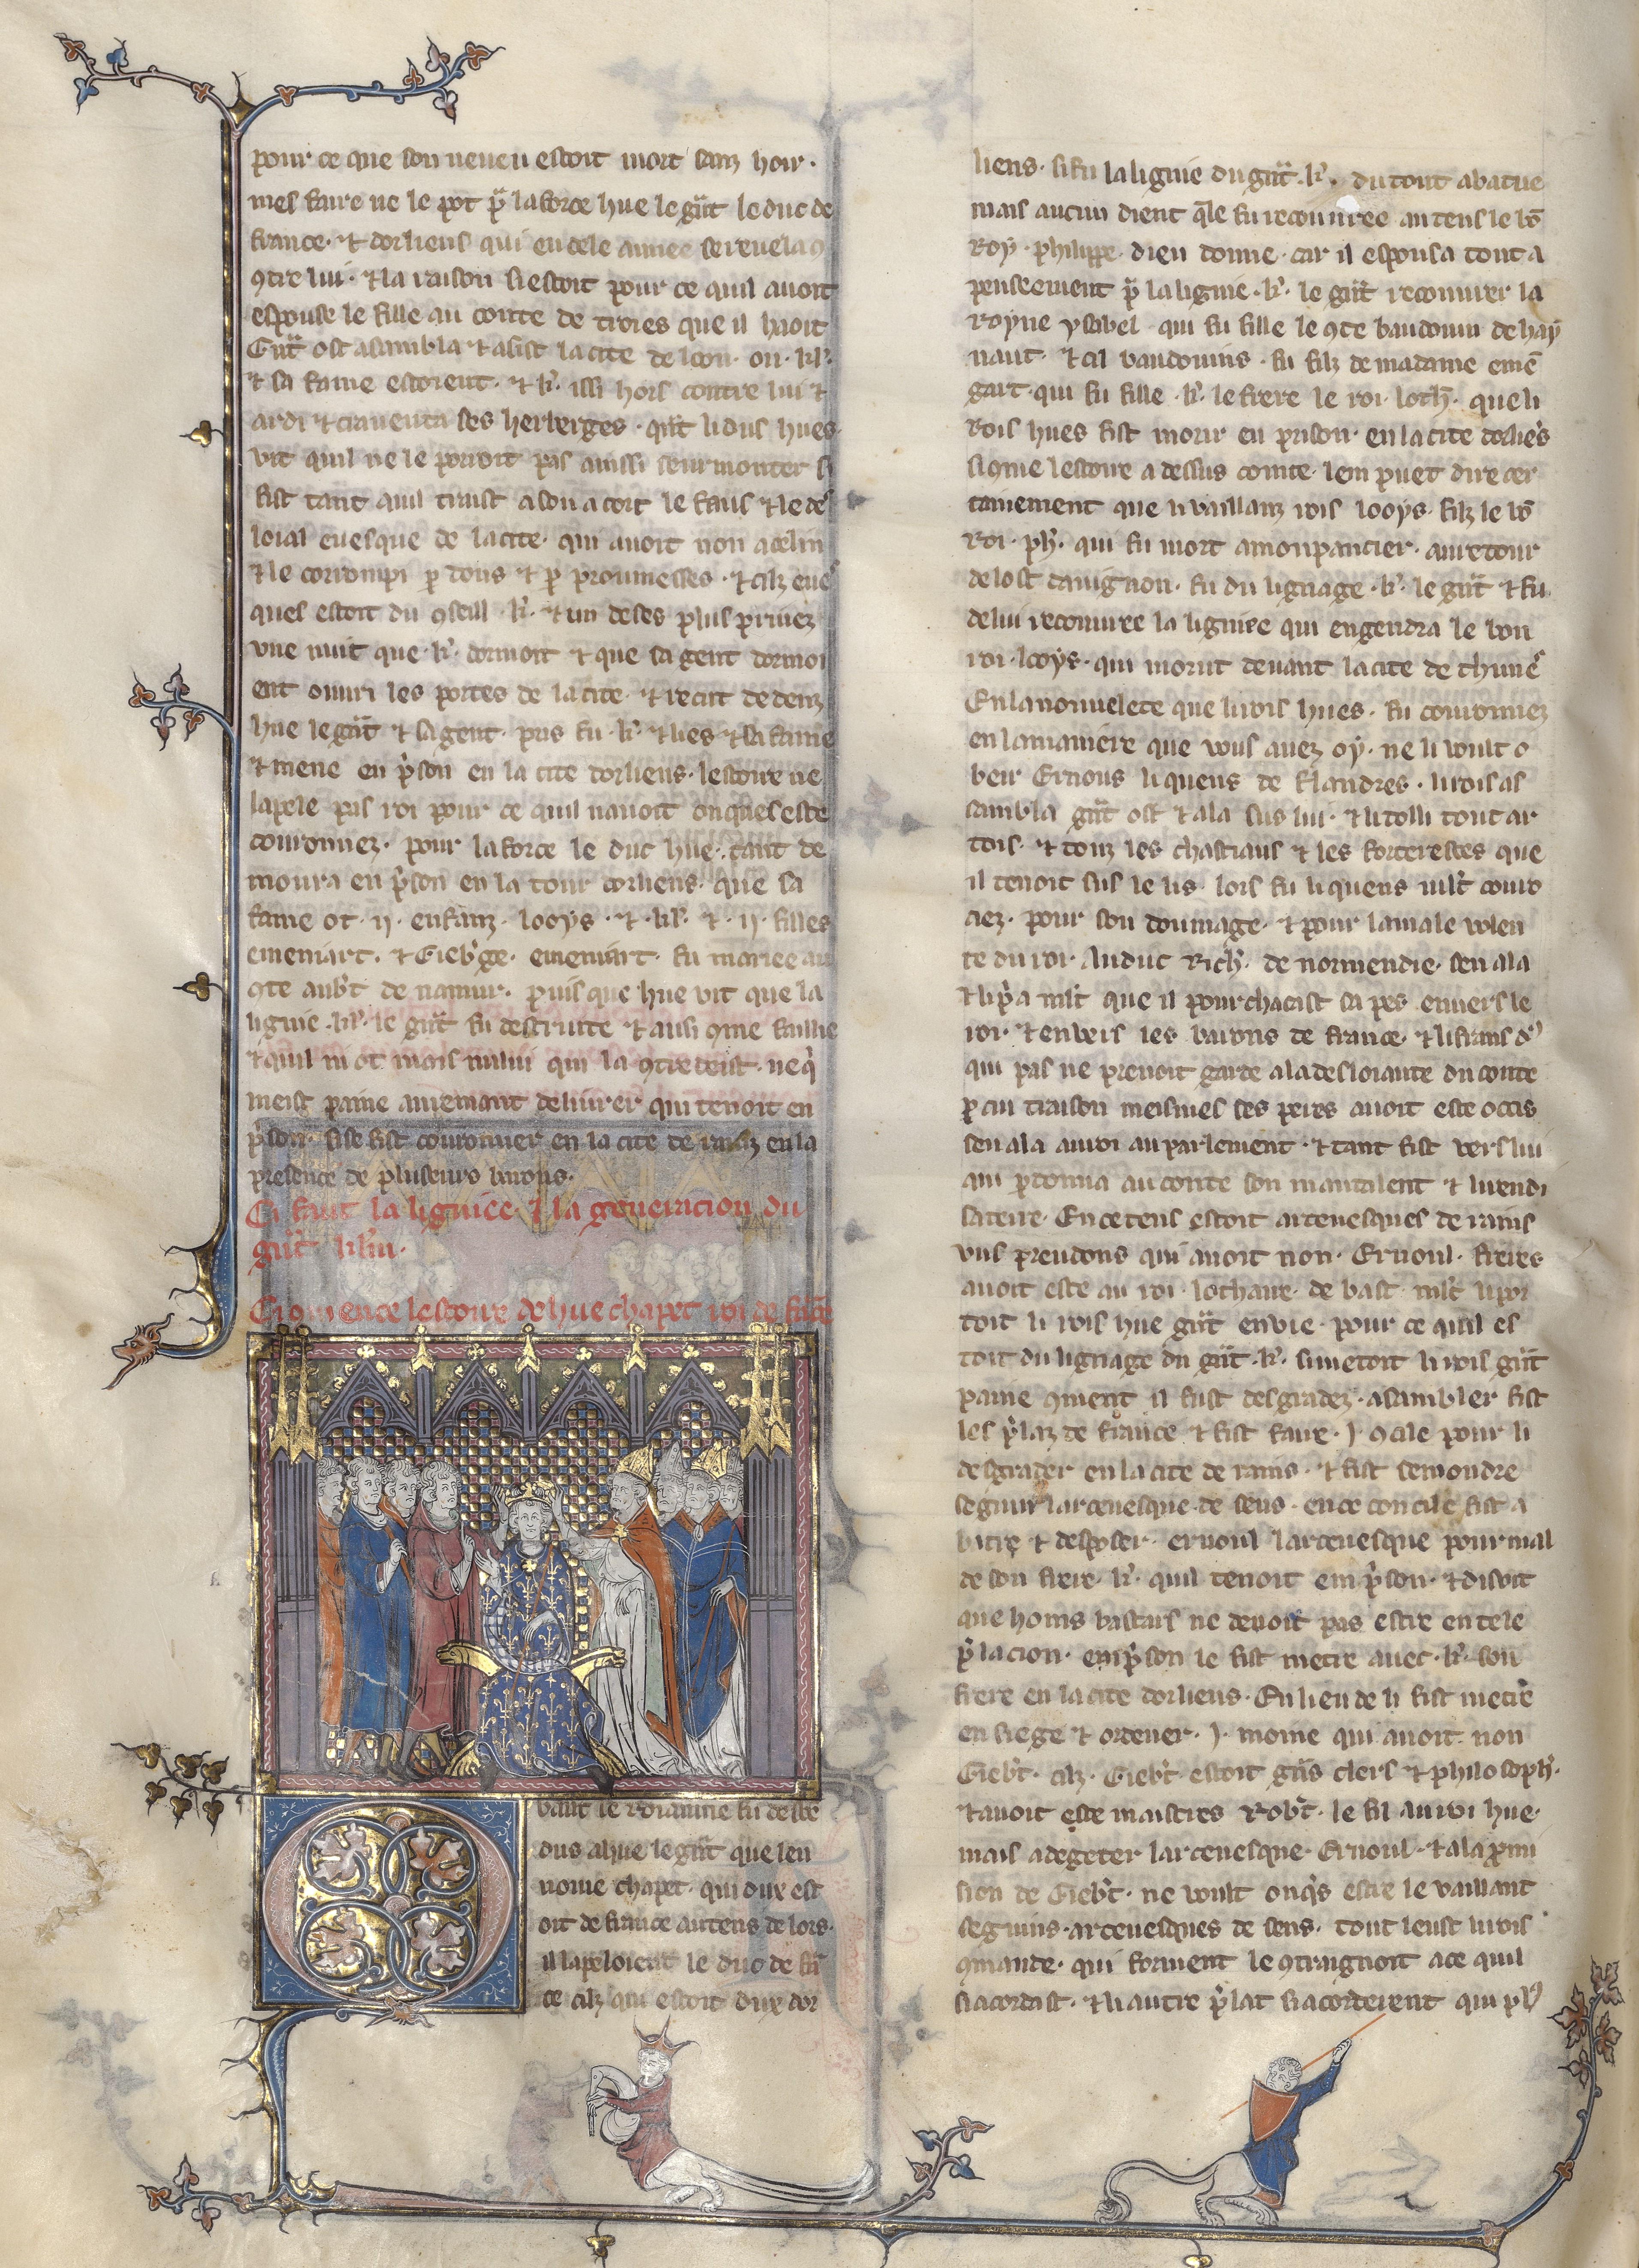 pour ce que son neueu estoit mort sanz hoir·
mes faire ne le pot pͣ la force hue le gͣt le duc de
france· ⁊ dorliens qui en cele annee se reuela
ꝯtre lui· ⁊ la raison si estoit pour ce quil auoit
espouse le fille au conte de troies que il haoit
Gͣt ost asambla ⁊ asist la cite de loon· ou ·kl'·
⁊ sa fame estoient· ⁊ k'· issi hors contre lui ⁊
ardi ⁊ crauenta ses herberges· qͣt li dus hues·
vit quil ne le porroit pas ainssi seurmonter si
fist tant quil traist a son acort le faus ⁊ le des
loial euesque de la cite· qui auoit non acelin
⁊ le corrompi ꝑ dons ⁊ ꝑ proumesses· ⁊ cilz eues
ques estoit du ꝯseill ·k'· ⁊ un de ses plus priuez
vne nuit que ·k'· dormoit ⁊ que sa gent dormoi
ent ouuri les portes de la cite· ⁊ recut dedenz
hue le gͣt ⁊ sa gent· pris fu ·k'· ⁊ lies ⁊ sa fame
⁊ mene en pͥson en la cite dorliens· lestoire ne
lapele pas roi pour ce quil nauoit onques este
couronnez· pour la force le duc hue· tant de
moura en pͥson en la tour dorliens· que sa
fame ot ·ij· enfanz· looys ·⁊· kl'· ⁊ ·ij· filles
emeniart· ⁊ Gieb'ge· emeniart· fu mariee au
ꝯte aub't de namur· puis que hue vit que la
lignie ·kl'· le gͣt fu destruite ⁊ ausi ꝯme faillie
⁊ quil ni ot mais nului qui la ꝯtredeist· ne qͥ
meist paine au remanant deliurer qui tenoit en
pͥson· si se fist couronner en la cite de rainz en la
presence de pluseurs barons·
Ci faut la ligniee ⁊ la generacion du
gͣt kl'm·
Ci ꝯmence lestoire de hue chapet roi de fͣce
Deuant le roiaume fu descen
dus a hue le gͣt que len
nome chapet· qui dux est
oit de france au tens de lors·
il lapeloient le duc de fͣn
ce cilz qui estoit dux dor
liens· si fu la lignie du gͣt ·k'· du tout abatue
mais aucun dient q̄le fu recouuree au tens le bō
Roy· phelippe· dieu donne· car il espousa tout a
penseement pͣ la lignie ·k'· le gͣt recouurer la
royne ysabel· qui fu fille le ꝯte baudouin de hay
naut· ⁊ cil baudouins· fu filz de madame emē
gart· qui fu fille ·k'· le frere le roi loth'· que li
Rois hues fist morir en prison· en la cite dorliēs
si ꝯme lestoire a dessus contee· lem puet dire cer
tainement que li vaillanz rois looys· filz le bō
Roi· ph'· qui fu mort a monpancier· au retour
de lost dauignon· fu du lignage ·k'· le gͣt ⁊ fu
de lui recouuree la ligniee qui engendra le bon
roi· looys· qui morut deuant la cite de thunes
En la nouuelete que li rois hues· fu couronnez
en la maniere que vous auez oy· ne li voult o
beir Ernous li quens de flandres· li rois as
sambla gͣt ost ⁊ ala sus lui· ⁊ li tolli tout ar
tois· ⁊ touz les chastiaus ⁊ les forteresces que
il tenoit sus le lis· lors fu li quens mlt' cour
ciez· pour son doumage· ⁊ pour la male volen
te du roi· Au duc Rich'· de normendie· sen ala
⁊ li pͥa mlt' que il pourchacast sa pes enuers le
roi· ⁊ enuers les barons de france· ⁊ li frans dus
qui pas ne prenoit garde a la desloiaute du conte
ꝑ cui traison meismes ses peres auoit este occis
sen ala au roi au parlement· ⁊ tant fist vers lui
qui ꝑdonna au conte son mautalent ⁊ li rendi
sa terre· En ce tens estoit arceuesques de rains
vns preudons qui auoit non· Ernoul· freres
auoit este au roi· lothaire· de bast· mlt' li por
toit li rois hue gͣt enuie· pour ce quil es
toit du lignage du gͣt ·k'· si metoit li rois gͣt
paine ꝯment il fust desgradez· asambler fist
les pͥlaz de france ⁊ fist faire ·j· ꝯcile pour li
desgrader en la cite de rains· ⁊ fist semondre
seguin larceuesque de sens· en ce concile fist a
batre ⁊ desposer· ernoul larceuesque pour mal
de son frere ·k'· quil tenoit em pͥson· ⁊ disoit
que homs bastars ne deuoit pas estre en tele
pͥlacion· em pͥson le fist metre auec ·k'· son
frere en la cite dorliens· En lieu de li fist metre
en siege ⁊ ordener ·j· moine qui auoit non
Gieb't· cilz· Gieb't· estoit gͣns clers ⁊ philosoph'·
⁊ auoit este maistres Rob't· le fil au roi hue·
mais a degeter larceuesque Ernoul· ⁊ a la promi
sion de Gieb't· ne voult onqͥs estre le vaillant
seguins· arceuesques de sens· tout leust li rois
ꝯmande· qui forment le ꝯtraignoit a ce quil
si acordast· ⁊ li autre pͥlat si acorderent qui pl'